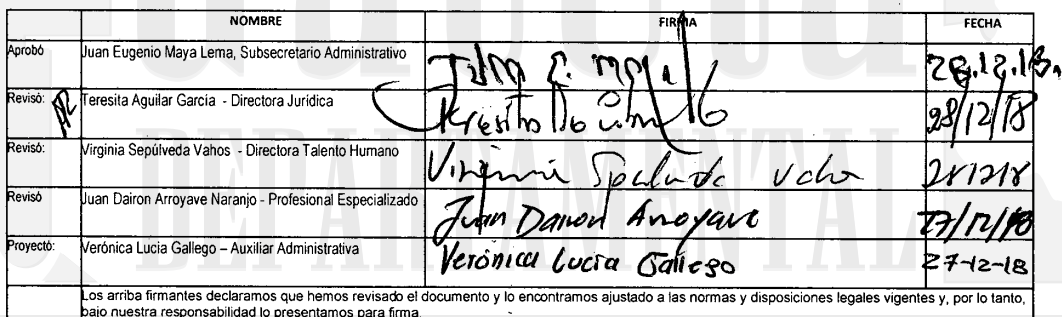 NOMBRE FIRMA FECHA
Aprobó Juan Eugenio Maya Lema, Subsecretario Administrativo Juan E. Maya L 28.12.18.
Revisó: Teresita Aguilar García - Directora Jurídica Teresita 28/12/18
Revisó: Virginia Sepúlveda Vahos - Directora Talento Humano Virginia Sepulveda Vahos 281218
Revisó Juan Dairon Arroyave Naranjo - Profesional Especializado Juan Dairon Arroyave 27/12/18
Proyectó: Verónica Lucia Gallego – Auxiliar Administrativa Verónica Lucia Gallego 27-12-18
Los arriba firmantes declaramos que hemos revisado el documento y lo encontramos ajustado a las normas y disposiciones legales vigentes y, por lo tanto,
bajo nuestra responsabilidad lo presentamos para firma.
DEPARTAMENTAL